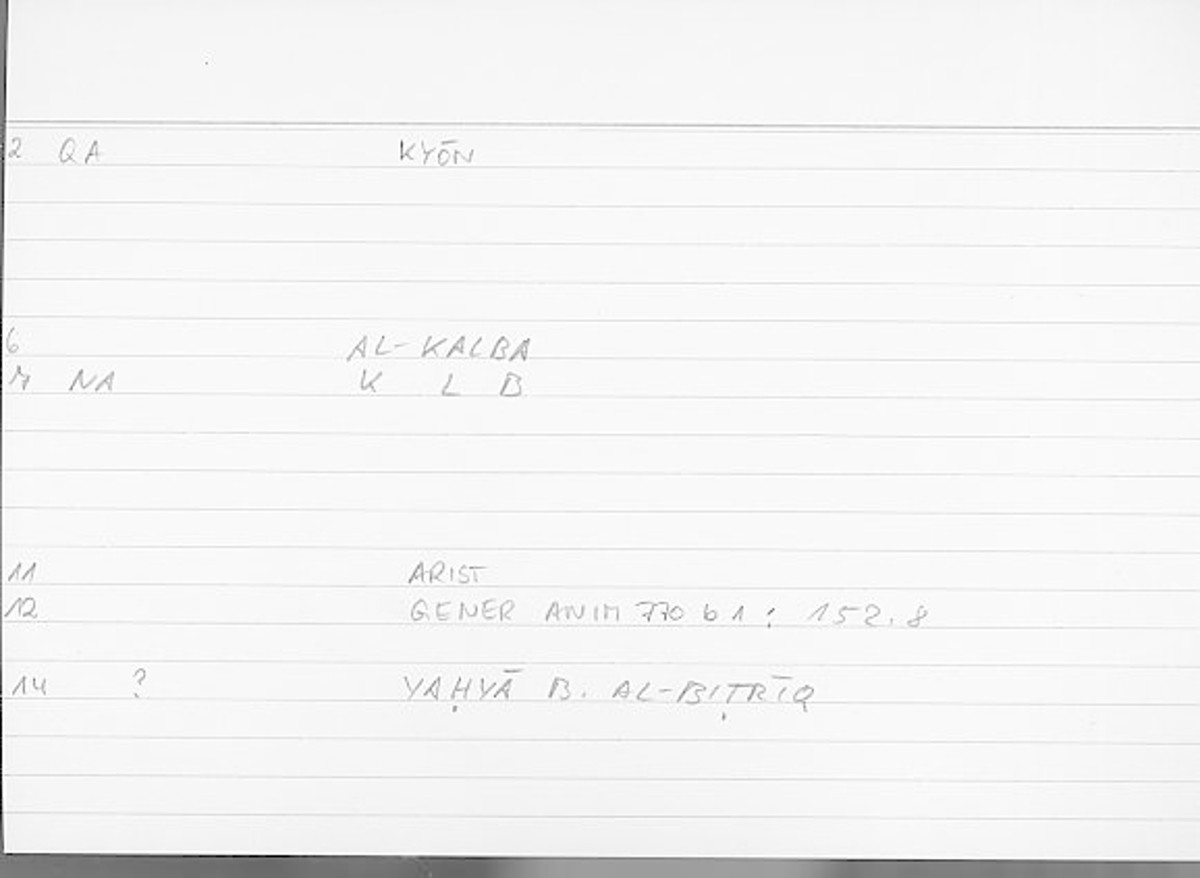 2 QA KYŌN
6 AL-KALBA
7 NA K L B
11 ARIST
12 GENER ANIM 770 b 1 ; 152.8
14 ? YAḤYĀ B. AL-BIṬRĪQ